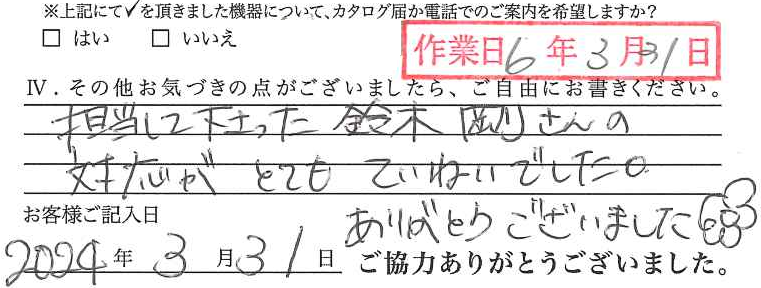 ※上記にて✓を頂きました機器について、カタログ届か電話でのご案内を希望しますか？
□ はい　□ いいえ
作業日 6年3月31日
Ⅳ．その他お気づきの点がございましたら、ご自由にお書きください。
担当して下さった 鈴木 剛さんの
対応が とても ていねいでした。
お客様ご記入日
ありがとうございました
2024年 3月31日
ご協力ありがとうございました。